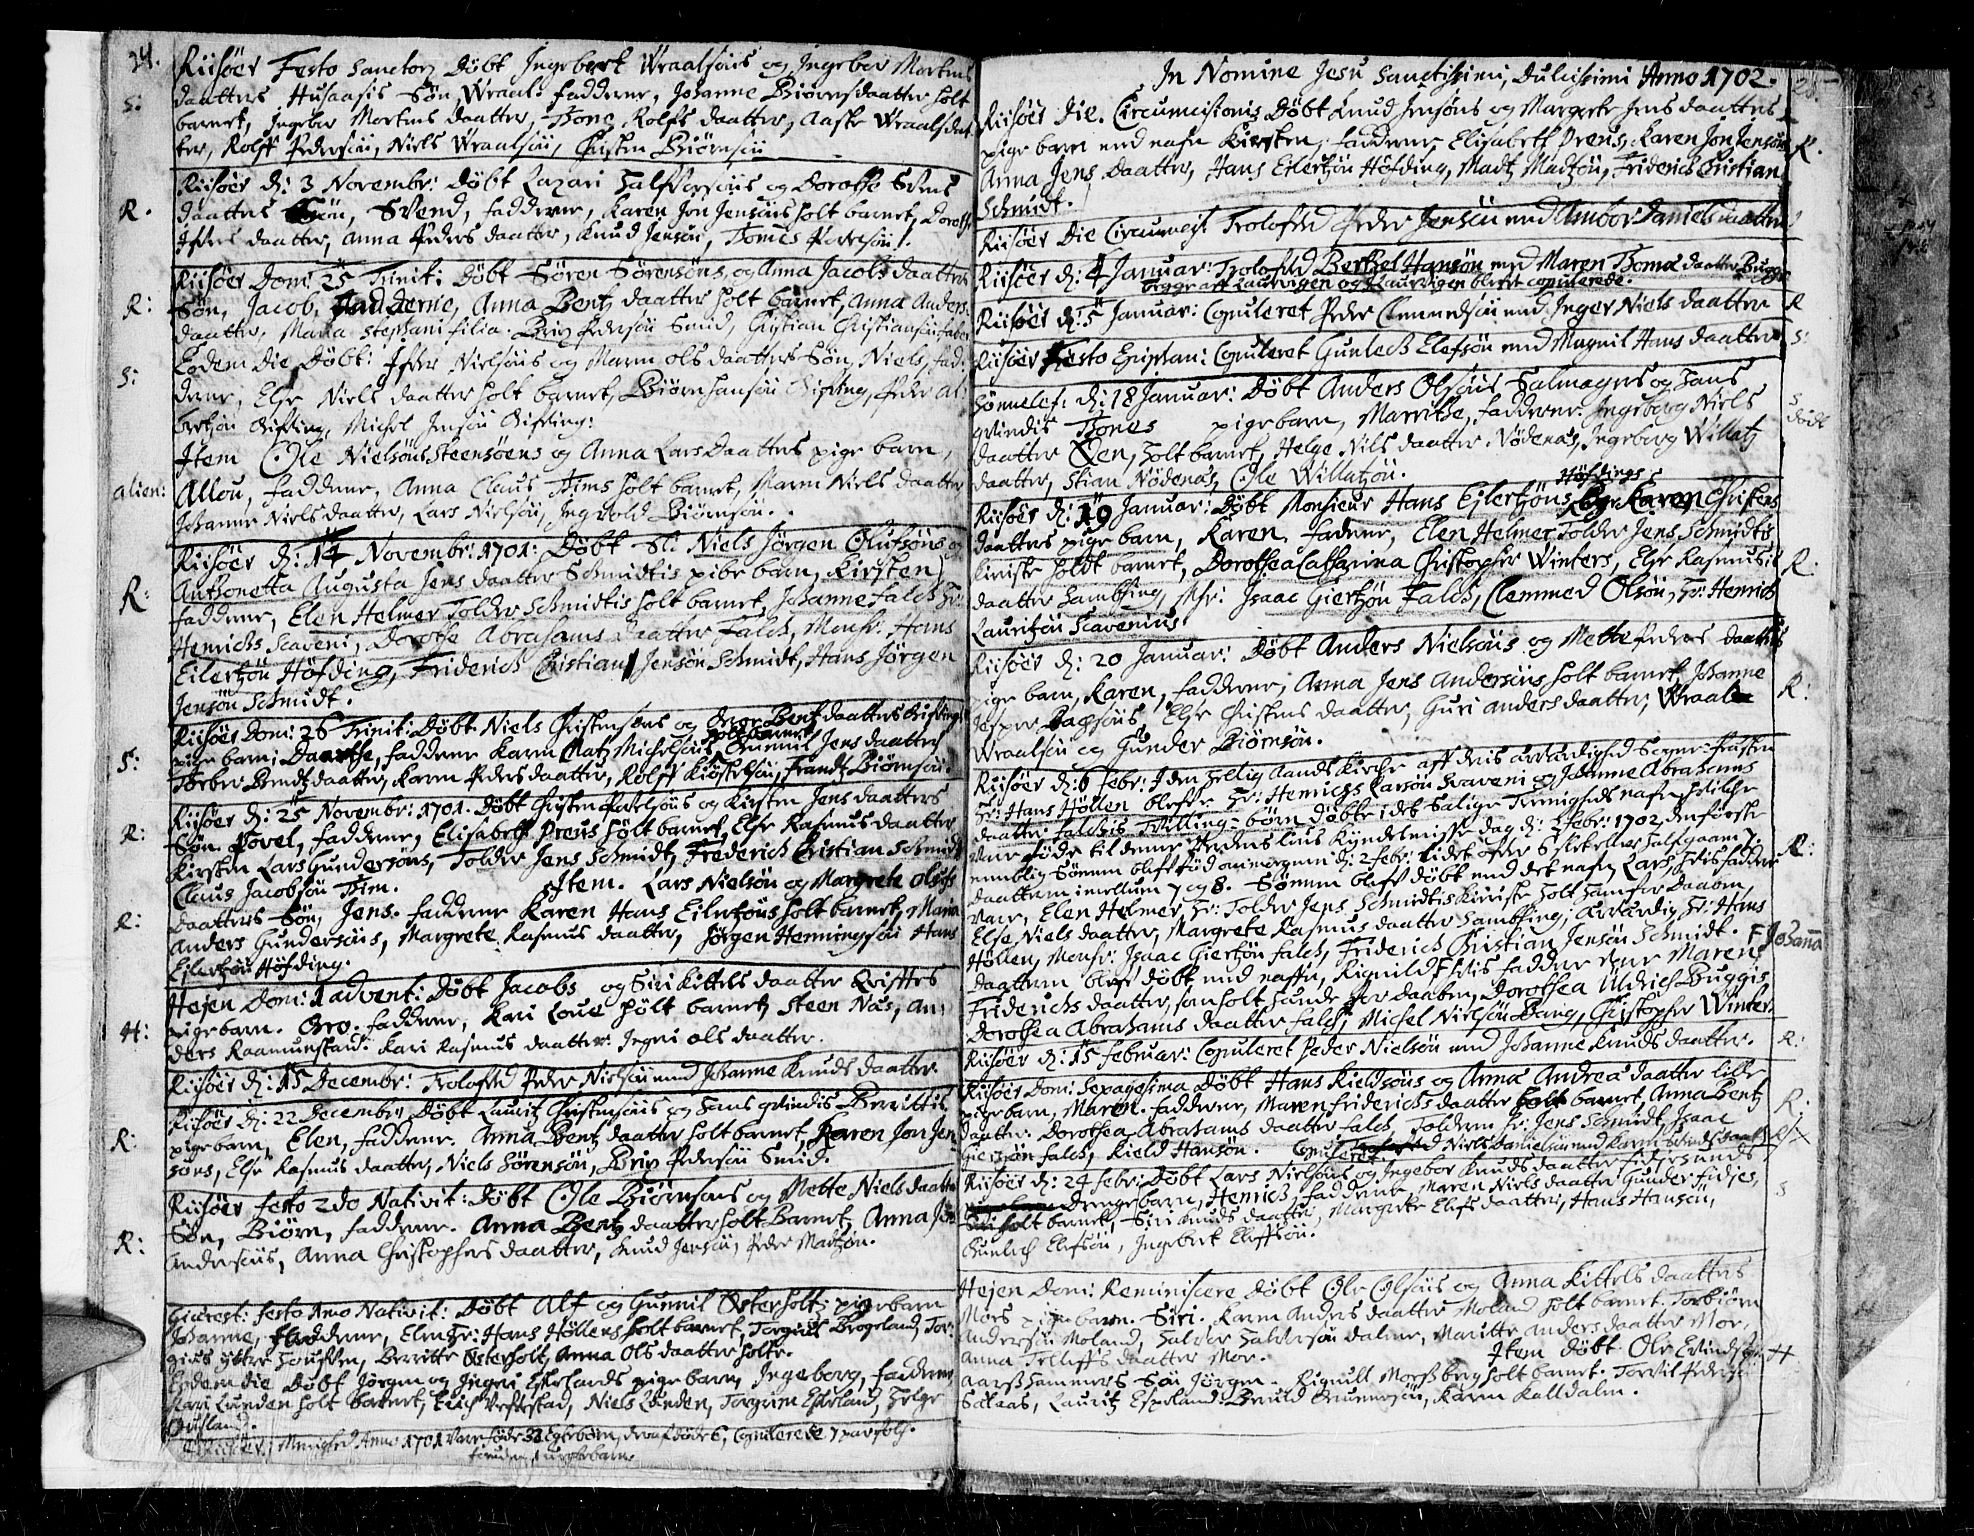 24.
Riisöer Festo Sanctor Döbt Ingebret Wraalsöns og Ingebor Mortens
S: daatters Husaasis Sön Wraal. fadderne, Johanne Biörnsdaatter holt
barnet, Ingebor Mortens daatter, Tone Rolfs daatter, Aaste Wraalsdaat
ter, Rolff Pedersön, Niels Wraalsön, Christen Biörnsön
Riisöer d: 3 Novembr: Döbt Lazari Halfvorsöns og Dorothe Svens
R. daatters Sön, Svend, fadderne, Karen Jon Jensöns holt barnet, Dorothe
Ifvers daatter, Anna Peders daatter, Knud Jensön, Tomes Pedersön.
Riisöer Dom: 25 Trinit: Döbt Sören Sörensöns og Anna Jacobs daatters
R: Sön, Jacob, Fadderne, Anna Bentz daatter holt barnet, Anna Anders
daatter, Maria Stephani filia. Brix Pedersön Smid, Christian Christiansön
Eodem die Döbt: Ifver Nielsöns og Maren Ols daatters Sön, Niels, fad:
S: derne, Else Niels daatter holt barnet, Biörn Hansön Gifting, Peder Al:
bertzön Gifting, Michel Jensön Gifting:
Item Ole Nielsöns Steensöens og Anna Lars Daatters pige barn,
alien: Allou, fadderne, Anna Claus Tims holt barnet, Maren Niels daatter
Johanne Niels daatter, Lars Nielsön, Ingvold Biörnsön.
Riisöer d: 14 Novembr: 1701: Döbt Sl: Niels Jörgen Olufsöns og
R: Anthonetta Augusta Jens daatter Schmidtis pige barn, Kirsten,
fadderne, Elen Helmer Tolder Schmidtis holt barnet, Johanne Falch Hr:
Henrichs Scaveni, Dorothe Abrahams Daatter Falch, Monsr: Hans
Eilertzön Höfding, Friderich Christian Jensön Schmidt, Hans Jörgen
Jensön Schmidt.
Riisöer Dom: 26 Trinit: Döbt Niels Christensöns og Bentz daatters Gifting
holt barnet
S: pige barn; Daarthe, fadderne Karen Matz Michelsöns, Gunnil Jens daatter
Torber Bendtz daatter, Karen Peders daatter, Rolff Kiöstelsön, Frandtz Biörnsön.
Riisöer d: 25 Novembr: 1701. Döbt Christen Povelsöns og Kirsten Jens daatters
R: Sön Povel, fadderne, Elisabeth Preus holt barnet, Else Rasmus daatter
Kirsten Lars Gundersöns, Tolder Jens Schmidt, Frederich Christian Schmidt
Claus Jacobsön Tim. Item. Lars Nielsön og Margrete Olufs
R: daatters Sön, Jens. fadderne Karen Hans Eilertzöns holt barnet, Maria
Anders Gundersöns, Margrete Rasmus daatter, Jörgen Henningssön Hans
Eilertzön Höfding.
Hejen Dom: 1 advent: Döbt Jacobs og Siri Kittels daatter
H: pige barn. Gro. fadderne, Kari Loue holt barnet, Steen Næs, An:
ders Raamunstad. Kari Rasmus daatter. Ingri Ols daatter.
Riisöer d: 15 Decembr: Trolofved Peder Nielsön med Johanne Knuds daatter.
Riisöer d: 22 Decembr Döbt Lauritz Christensöns og hans qvindis Berrittis
R: pige barn, Elen, fadderne. Anna Bentz daatter holt barnet, Karen Jon Jen
söns, Else Rasmus daatter, Niels Sörensön, Brix Pedersön Smid.
Riisöer festo 2do Nativit: Döbt Ole Biörnsöns og Mette Niels daatter
R: Sön, Biörn, fadderne. Anna Bentz daatter holt Barnet, Anna Jens
Andersöns, Anna Christophers daatter, Knud Jensön, Peder Matzön.
Giærest: festo Nativit: Döbt Alf og Gunnil Österholtz pigebarn
Johanne, fadderne, Elen Hr: Hans Höllens holt barnet, Torgius Brogeland, Tor:
gius ytter Berritte Österholt, Anna Ols daatter holte.
Eodem die Döbt Jörgen og Ingri Espelands pige barn, Ingeborg, fadderne
Kari Lunden holt barnet, Erich Vefvestad, Niels Lunden, Torgrim Espeland, Helge
Huusland.
Menighed Anno 1701 Vare föde 32 Egtebörn, deraf döde 6, Copulerede 7 par folk.
foruden 1 barn.
In Nomine Jesu Sanctissimi, Dulcissimi Anno 1702.
Riisöer die Circumcisionis Döbt Knud Jensöns og Margrete Jens daatters
pige barn med nafn Kirsten, fadderne, Elisabeth Preus, Karen Jon Jensöns R.
Anna Jens Daatter, Hans Eilertzön Höfding, Madtz Madtzön, Friderich Christian
Schmidt.
Riisöer Die Circumcis: Trolofved Peder Jensön med Ambor Daniels daatter
Riisöer d: 4 Januar: Trolofved Berthel Hansön med Maren Tomæ daatter Bugge
begge aff Laurvigen og i Laurvigen blevet copulerede.
Riisöer d: 5 Januar: Copuleret Peder Clemmedsön med Inger Niels daatter R
Riisöer Festo Epiphan: Copuleret Gunlech Elefsön med Magnil Hans daatter S:
Sönnelef: d: 18 Januar: Döbt Anders Olsöns Salmagers og hans S
qvindis Tones pige barn, Marrithe, fadderne. Ingeborg Niels Dödt
daatter Öen, holt barnet, Helge Nils daatter Nödenæs, Ingeborg Willatz
daatter, Stian Nödenæs, Ole Willatzön.
Höfdings
Riisöer d: 19 Januar: Döbt Monsieur Hans Ejlertzöns og Karen Christens
daatters pige barn, Karen, faderne, Elen Helmer Tolder Jens Schmidtis
kiriste holdt barnet, Dorothea Catharina Christopher Winters, Else Rasmus R:
daatter Sambsing, Mr: Isaac Giertzön Falch, Clemmed Olsön, Hr: Henrich
Lauritzön Scavenius.
Riisöer d: 20 Januar: Döbt Anders Nielsöns og Mette Peders daatters
pige barn, Karen, fadderne, Anna Jens Andersöns holt barnet, Johanne R:
Jesper Bagsöns, Else Christens daatter, Guri Anders daatter, Wraal
Wraalsön og Gunder Biörnsön.
Riisöer d: 6 Febr: I den hellig Aands Kirche aff deris ærværdighed Sogne: Presten
Hr: Hans Höllen blefve Hr: Henrichs Larsön Scaveni og Johanne Abrahams
daatter Falchis Tvilling-börn döbte i det Salige Treenigheds nafn hvilche
vare föde til denne verdens lius Kyndelmisse dag d: 2 Febr: 1702. den förste
nemblig Sönnen blef föd om morgenen d: 2 febr: lidet efter 6 slet eller halfgaaen 7 R:
daatteren imellum 7 og 8. Sönnen blef döbt med det nafn Lars, hvis fadder
vare, Elen Helmer, Hr: Tolder Jens Schmidtis kiriste holt ham for Daaben,
Else Niels daatter, Margrete Rasmus daatter Sambsing, ærværdig Hr: Hans
Höllen, Monsr: Isaac Giertzön Falch, Friderich Christian Jensön Schmidt. F Johanna
daatteren blef döbt med naffn, Rignild F hvis fadder vare Maren
Friderichs daatter, som holt hende for daaben, Dorothea Uldrich Buggis
Dorothea Abrahams daatter Falch, Michel Nielsön Bang, Christopher Winter.
Riisöer d: 15 Februar: Copuleret Peder Nielsön med Johanne Knuds daatter. R:
Riisöer Dom: Sexagesima Döbt Hans Kieldsöns og Anna Andrea daatter lille
pige barn, Maren. fadderne, Maren Friderichs daatter holt barnet, Anna Bentz R:
daatter. Dorothea Abrahams daatter Falch, Tolderen Hr: Jens Schmidt, Isaac
Giertzön Falch, Kield Hansön. Copuleret Niels Danielsön med Karen
Riisöer d: 24 febr: Döbt Lars Nielsöns og Ingebor Knuds daatter
Drenge barn, Henrich, fadderne Maren Niels daatter Gunder Fidjes, S
Siri holt barnet, Siri Knuds daatter, Margrete Elefs daatter, Hans Hansön,
Gunlech Elefsön, Ingebret Eleffsön.
Hejen Dom: Reminiscere Döbt Ole Olsöns og Anna Kittels daatters
Mors pige barn. Siri. Karen Anders daatter Moland holt barnet. Torbiörn
Andersön Moland, Halvor Halvorsön Dalene, Maritte Anders daatter Mor,
Anna Tellefs daatter Mor. Item Döbt Ole Evindsön H
Aarsshammers Sön Jörgen. Rignill Morsberg holt barnet. Torvil Peder
Salaas, Lauritz Espeland. Bernid Gunnersön, Karen Kalldalen.